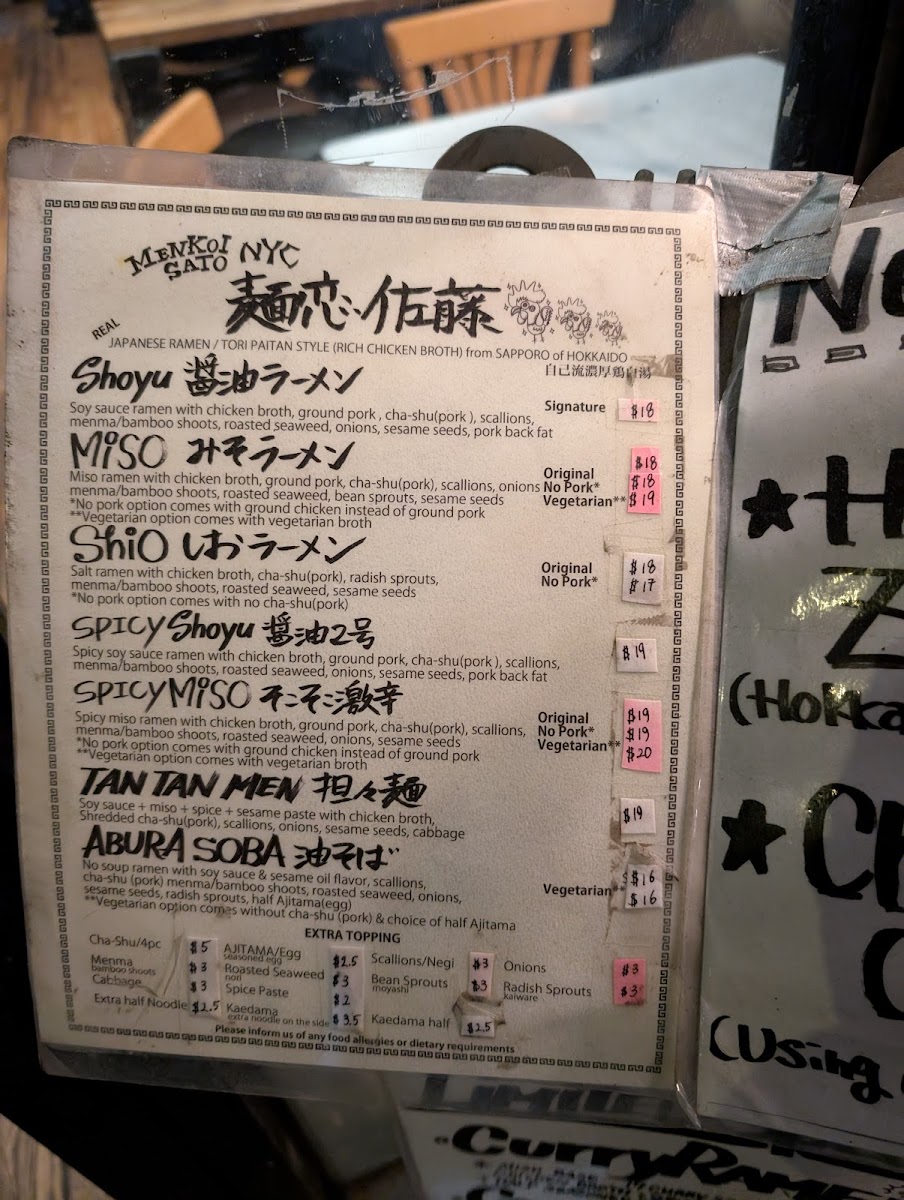 MENKOI SATO NYC
麺恋佐藤
REAL
JAPANESE RAMEN / TORI PAITAN STYLE (RICH CHICKEN BROTH) from SAPPORO of HOKKAIDO
自己流濃厚鶏白湯
Shoyu 醤油ラーメン
Soy sauce ramen with chicken broth, ground pork , cha-shu(pork ), scallions,
menma/bamboo shoots, roasted seaweed, onions, sesame seeds, pork back fat
Signature $18
MiSO みそラーメン
Miso ramen with chicken broth, ground pork, cha-shu(pork), scallions, onions
menma/bamboo shoots, roasted seaweed, bean sprouts, sesame seeds
*No pork option comes with ground chicken instead of ground pork
**Vegetarian option comes with vegetarian broth
Original $18
No Pork* $18
Vegetarian** $19
ShiO しおラーメン
Salt ramen with chicken broth, cha-shu(pork), radish sprouts,
menma/bamboo shoots, roasted seaweed, sesame seeds
*No pork option comes with no cha-shu(pork)
Original $18
No Pork* $17
SPICY Shoyu 醤油2号
Spicy soy sauce ramen with chicken broth, ground pork, cha-shu(pork ), scallions,
menma/bamboo shoots, roasted seaweed, onions, sesame seeds, pork back fat
$19
SPICY MiSO そこそこ激辛
Spicy miso ramen with chicken broth, ground pork, cha-shu(pork), scallions,
menma/bamboo shoots, roasted seaweed, onions, sesame seeds
*No pork option comes with ground chicken instead of ground pork
**Vegetarian option comes with vegetarian broth
Original $19
No Pork* $19
Vegetarian** $20
TAN TAN MEN 担々麺
Soy sauce + miso + spice + sesame paste with chicken broth,
Shredded cha-shu(pork), scallions, onions, sesame seeds, cabbage
$19
ABURA SOBA 油そば
No soup ramen with soy sauce & sesame oil flavor, scallions,
cha-shu (pork) menma/bamboo shoots, roasted seaweed, onions,
sesame seeds, radish sprouts, half Ajitama(egg)
**Vegetarian option comes without cha-shu (pork) & choice of half Ajitama
$16
Vegetarian** $16
EXTRA TOPPING
Cha-Shu/4pc $5
Menma $3
bamboo shoots
Cabbage $3
Extra half Noodle $2.5
AJITAMA/Egg $2.5
seasoned egg
Roasted Seaweed $3
nori
Spice Paste $2
Kaedama $3.5
extra noodle on the side
Scallions/Negi $3
Bean Sprouts $3
moyashi
Kaedama half $2.5
Onions $3
Radish Sprouts $3
kaiware
Please inform us of any food allergies or dietary requirements
★
(Hokka
★
(Using
LIMITED
Curry RAM